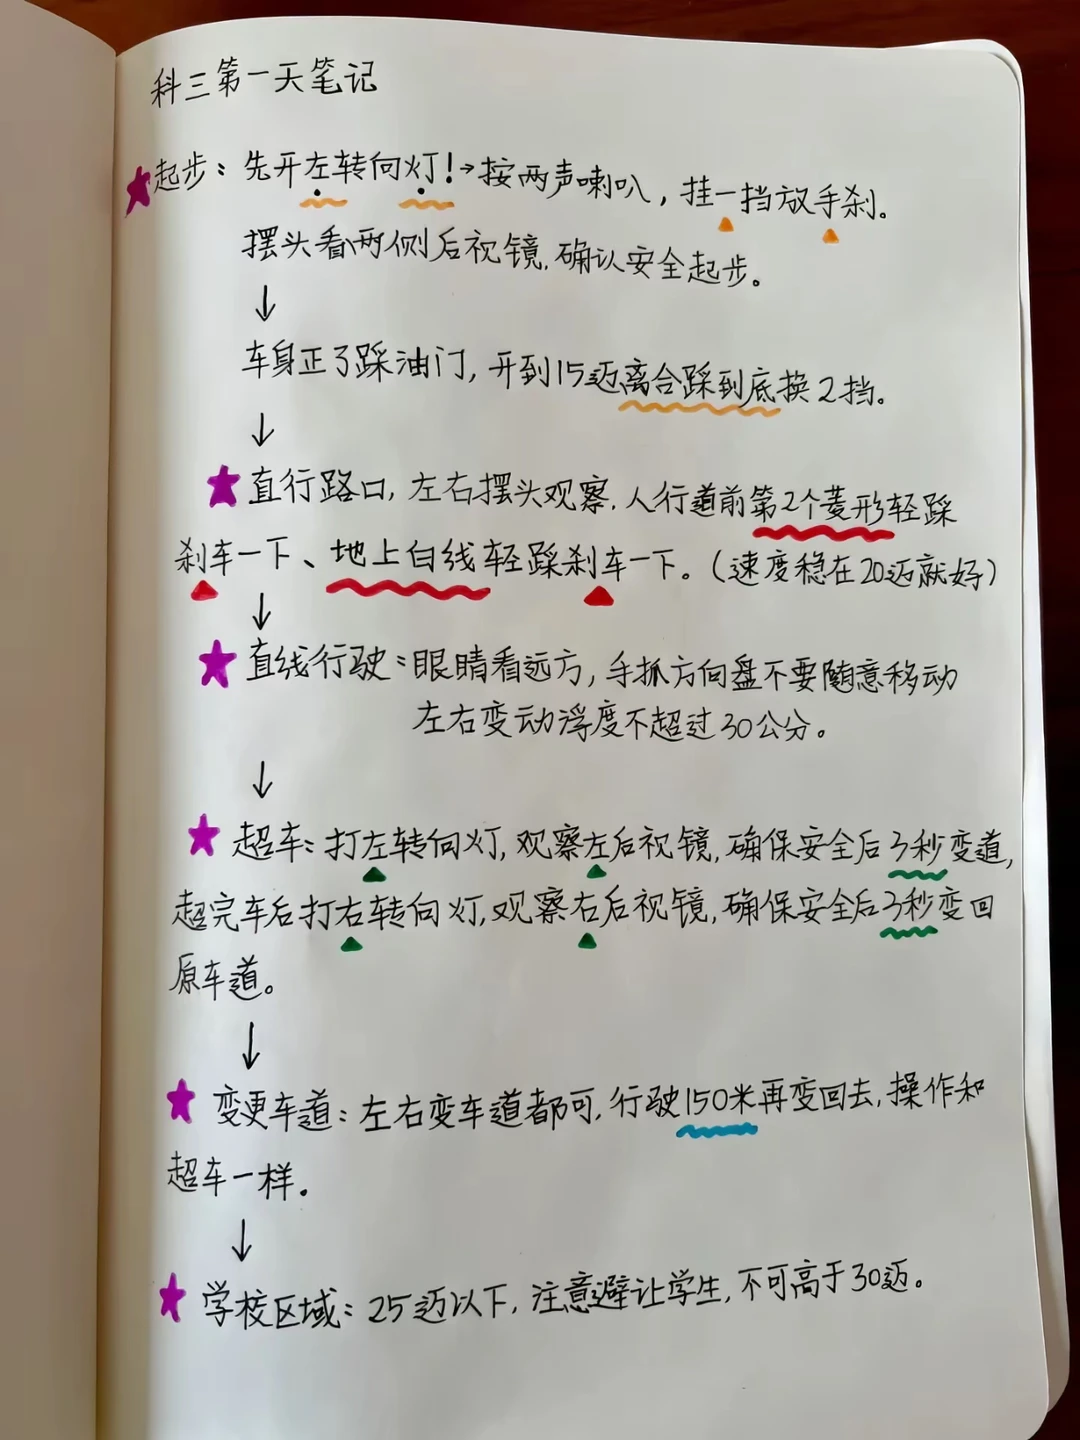 科三第一天笔记
起步：先开左转向灯！→按两声喇叭，挂一挡放手刹。
摆头看两侧后视镜，确认安全起步。
↓
车身正了踩油门，开到15迈离合踩到底换2挡。
↓
★直行路口，左右摆头观察，人行道前第2个菱形轻踩
刹车一下、地上白线轻踩刹车一下。（速度稳在20迈就好）
↓
★直线行驶：眼睛看远方，手抓方向盘不要随意移动
左右变动浮度不超过30公分。
↓
★超车：打左转向灯，观察左后视镜，确保安全后3秒变道，
超完车后打右转向灯，观察右后视镜，确保安全后3秒变回
原车道。
↓
★变更车道：左右变车道都可，行驶150米再变回去，操作和
超车一样。
↓
★学校区域：25迈以下，注意避让学生，不可高于30迈。